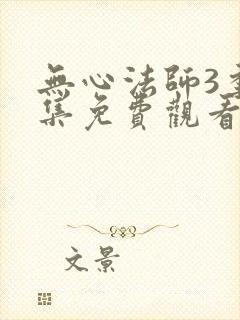 無心法師3
集免費觀看
文景